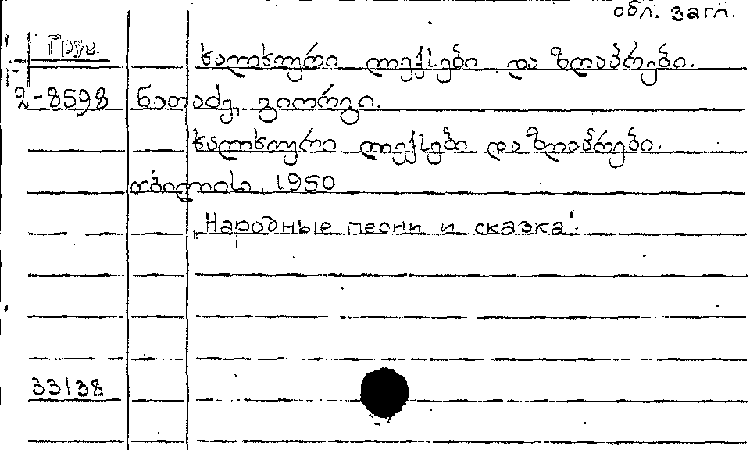 обл. загл.
Груз.
ხალხური ლექსები და ზღაპრები.
2-8598 ნათაძე, გიორგი.
ხალხური ლექსები და ზღაპრები.
თბილისი, 1950
"Народные песни и сказка".
33138